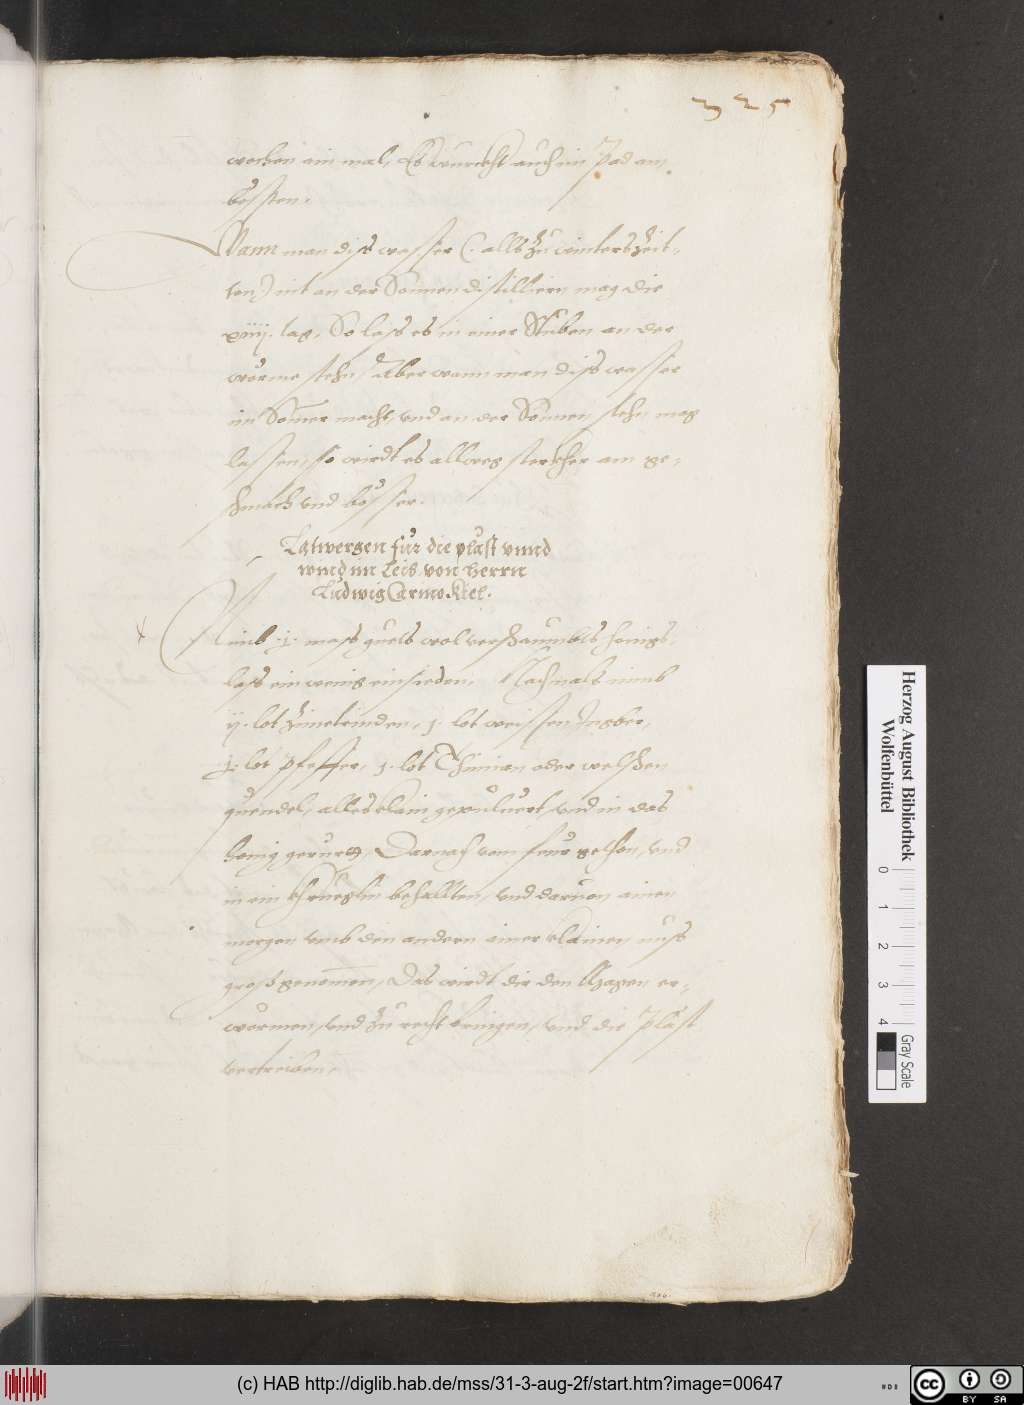 325
wochen ein mal, Es wurckht auch im Pad am
bösten.
Wann man diss wasser (: alls zu winterszeit-
ten) nit an der Sonnen distilliern mag die
xiiij. tag, So lass es in einer Stuben an der
wörme stehn, Aber wann man diss wasser
im Som̄er macht, vnd an der Sonnen stehn mag
lassen, so wirdt es allweg sterckher am ge-
schmach vnd bösser.
Latwergen für die pläst vnnd
wind im Leib, von herrn
Ludwig
Nimb .j. mass guets wol verschaumbts honigs,
lass ein wenig einsieden, Nachmals nimb
ij. lot Zimetrinden, j. lot weissen Ingber,
j. lot pfeffer, j. lot Thimian oder welschen
quendel, alles klain gepuluert, vnd in das
honig geruert, Darnach vom feur gethon, vnd
in ein behallten, vnd daruon ainen
morgen vmb den andern einer klainen nuss
gross genom̄en, Das wirdt dir den Magen er-
wörmen, vnd zu recht bringen, vnd die pläst
vertreiben.
Herzog August Bibliothek
Wolfenbüttel
0 1 2 3 4
Gray Scale
(c) HAB http://diglib.hab.de/mss/31-3-aug-2f/start.htm?image=00647
cc BY SA